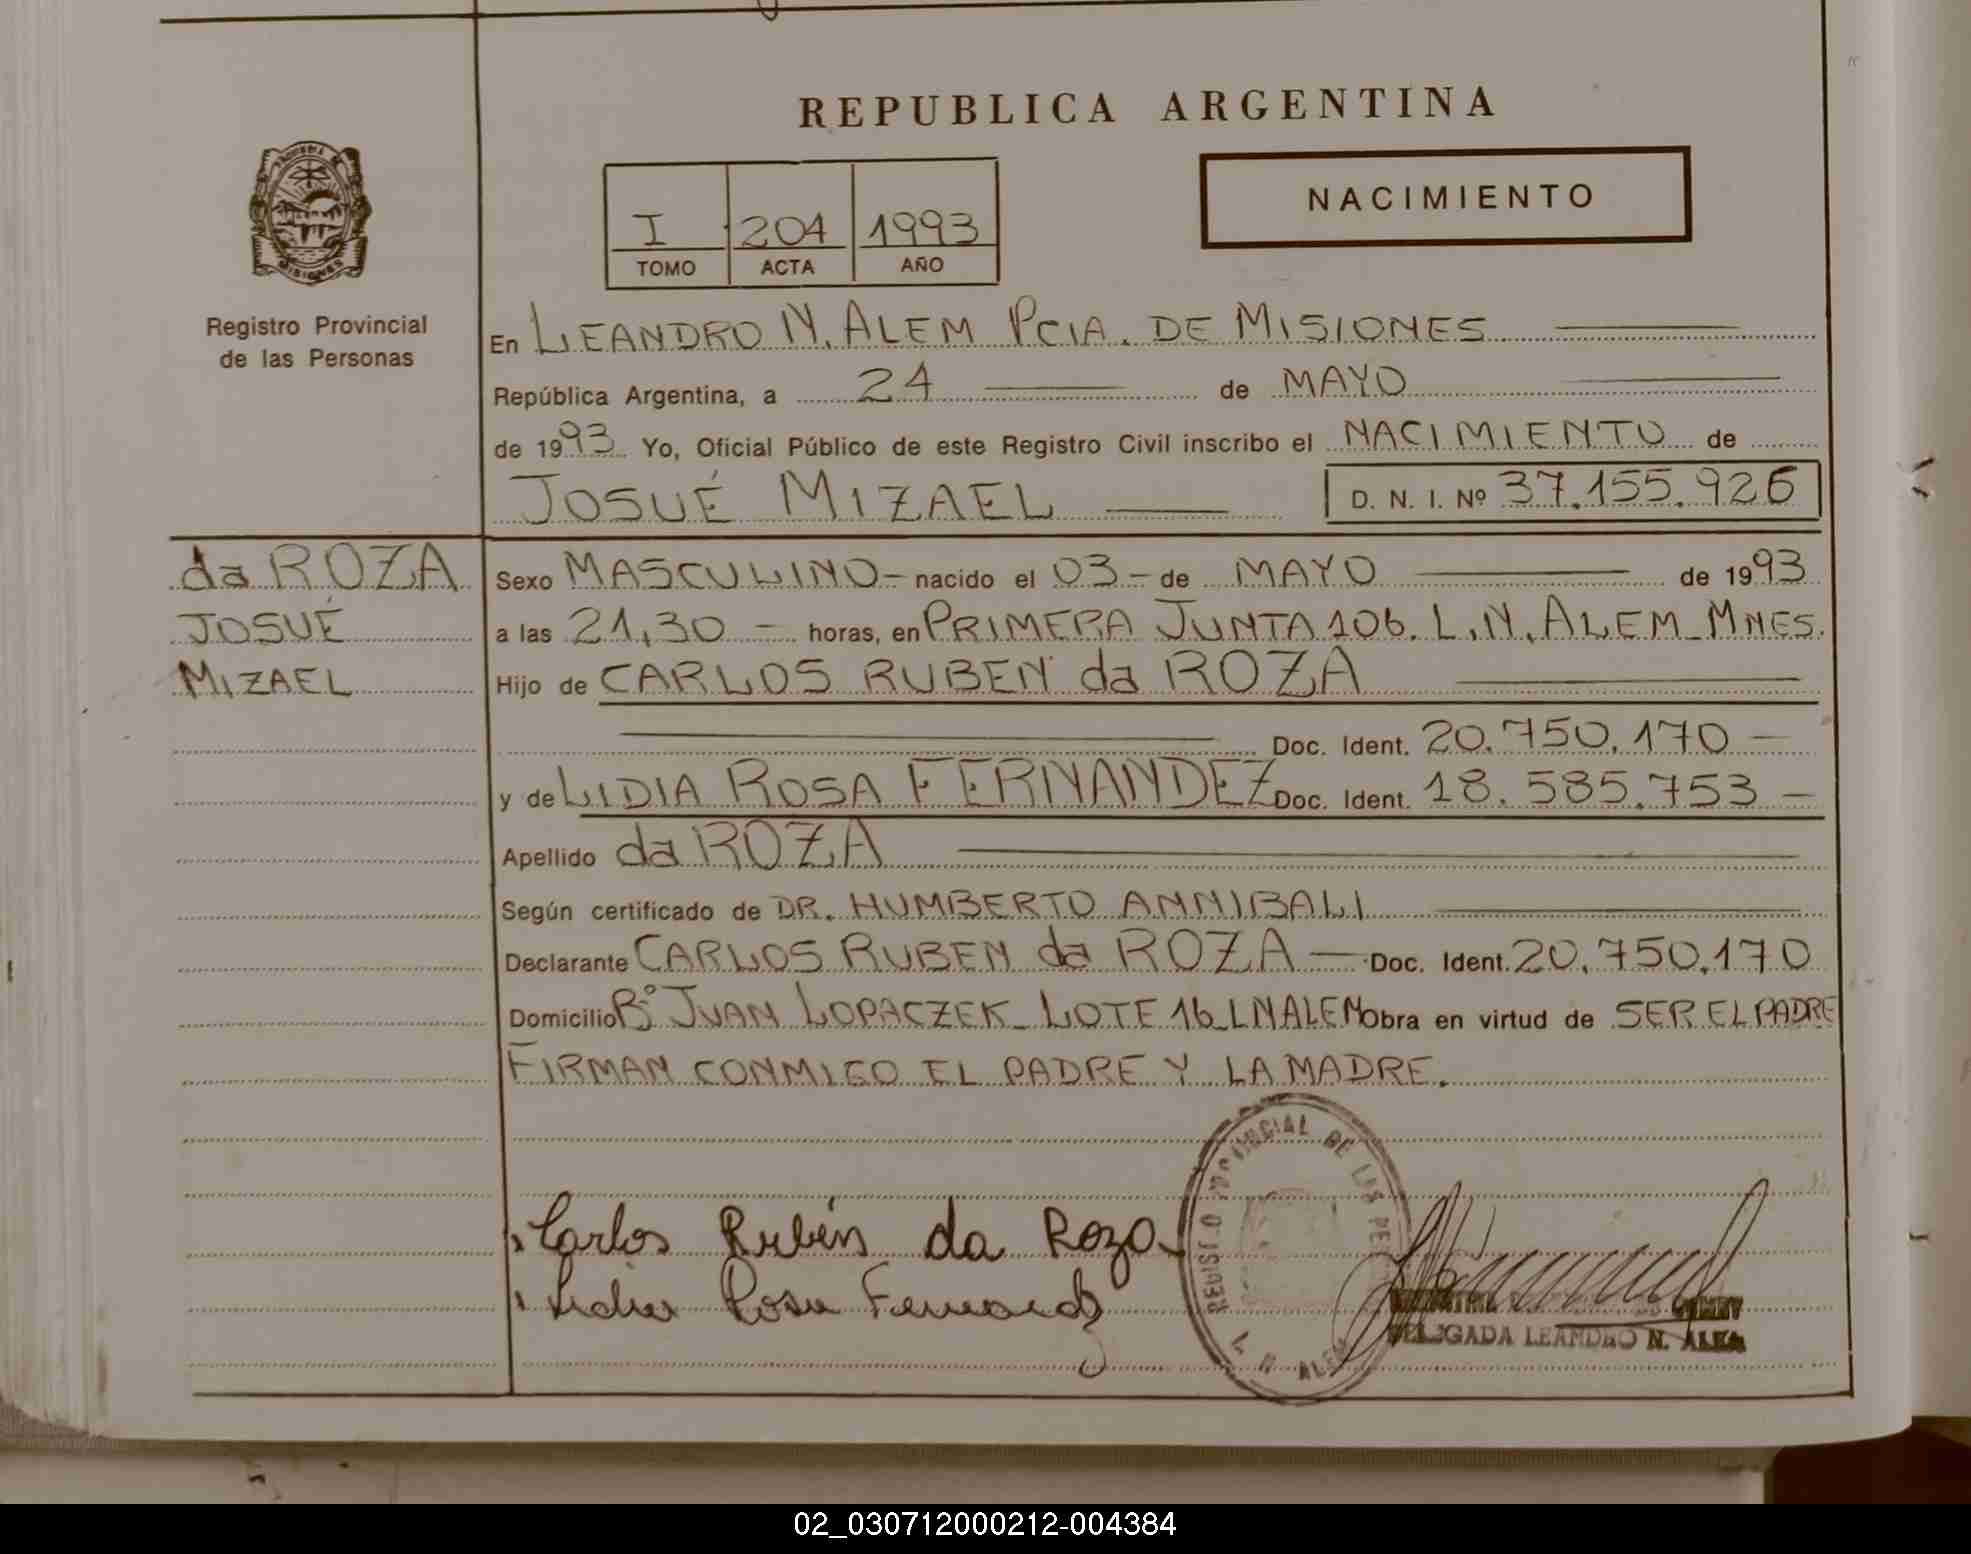 REPUBLICA ARGENTINA
NACIMIENTO
I 204 1993
TOMO ACTA AÑO
PROVINCIA
MISIONES
Registro Provincial
de las Personas
En LEANDRO N. ALEM PCIA. DE MISIONES
República Argentina, a 24 de MAYO
de 1993 Yo, Oficial Público de este Registro Civil inscribo el NACIMIENTO de
JOSUÉ MIZAEL D. N. I. Nº 37.155.926
da ROZA
JOSUÉ
MIZAEL
Sexo MASCULINO - nacido el 03 - de MAYO de 1993
a las 21,30 - horas, en PRIMERA JUNTA 106. L.N. ALEM - MNES.
Hijo de CARLOS RUBEN da ROZA
Doc. Ident. 20.750.170 -
y de LIDIA ROSA FERNANDEZ Doc. Ident. 18.585.753 -
Apellido da ROZA
Según certificado de DR. HUMBERTO ANNIBALI
Declarante CARLOS RUBEN da ROZA - Doc. Ident. 20.750.170
Domicilio Bº JUAN LOPACZEK - LOTE 16 - LNALEM Obra en virtud de SER EL PADRE
FIRMAN CONMIGO EL PADRE Y LA MADRE.
Carlos Rubén da Roza
Lidia Rosa Fernandez
REGISTRO PROVINCIAL DE LAS PE
L. N. ALEM
DELEGADA LEANDRO N. ALEM
02_030712000212-004384